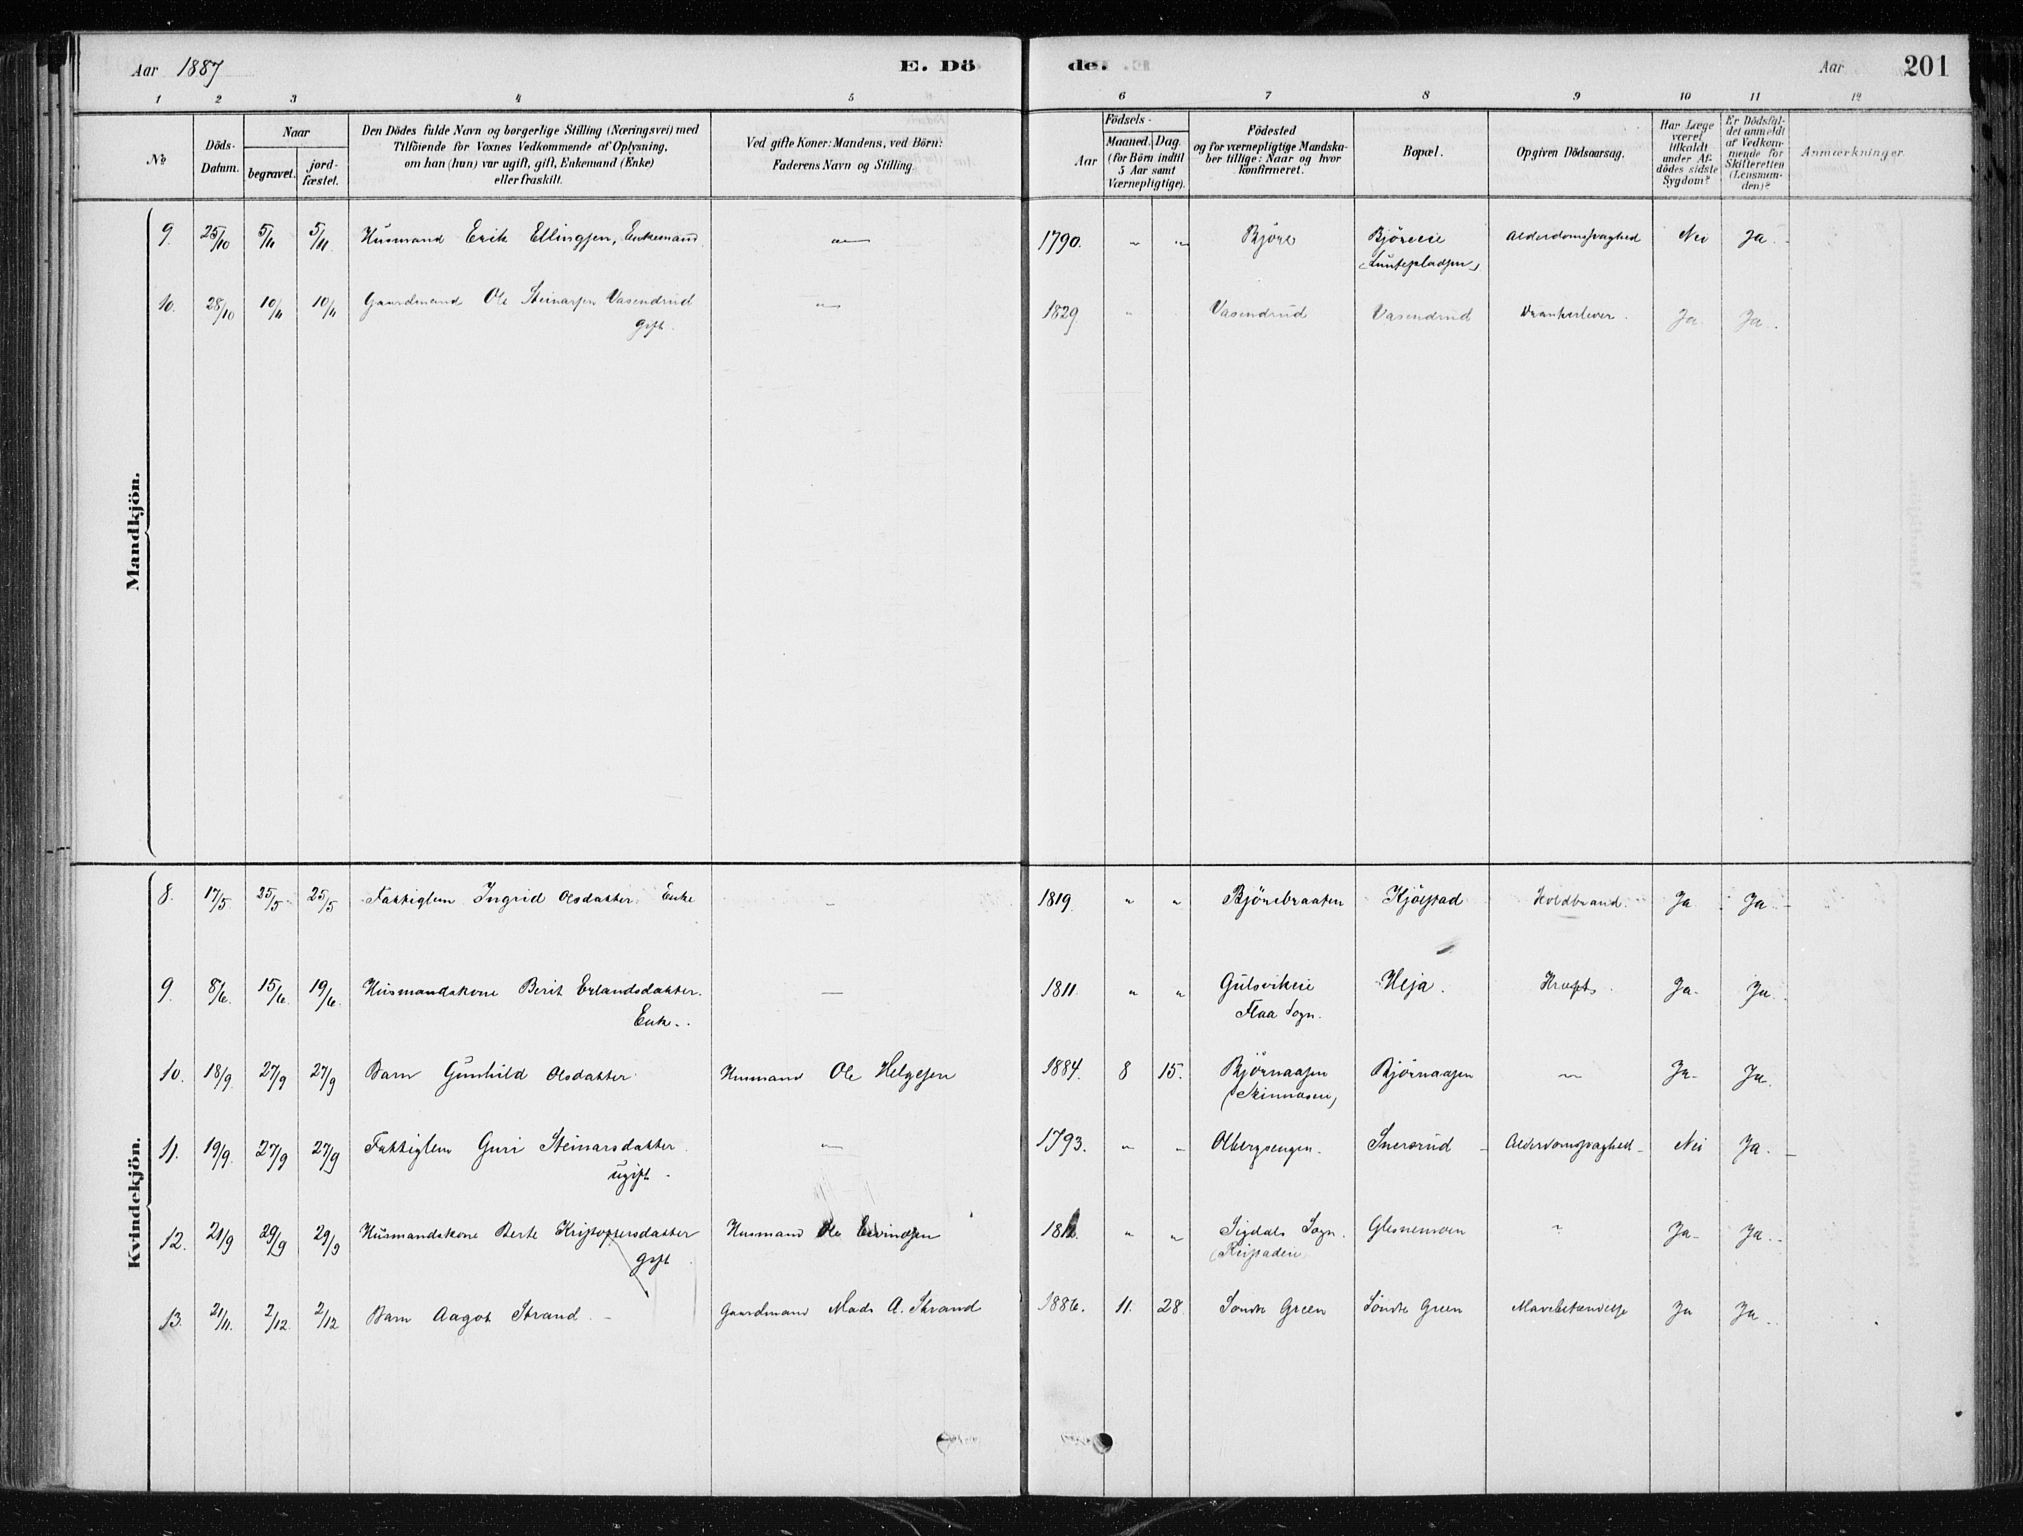 Aar 1887
E. Dö
de.
Aar
201
1 2 3 4 5 6 7 8 9 10 11 12
№
Döds-
Datum.
Naar
begravet.
jord-
fæstet.
Den Dödes fulde Navn og borgerlige Stilling (Næringsvei) med
Tilföiende for Voxnes Vedkommende af Oplysning,
om han (hun) var ugift, gift, Enkemand (Enke)
eller fraskilt.
Ved gifte Koner: Mandens, ved Börn:
Faderens Navn og Stilling.
Födsels-
Aar
Maaned. Dag.
(for Börn indtil
5 Aar samt
Værnepligtige).
Födested
og for værnepligtige Mandska-
ber tillige: Naar og hvor
konfirmeret.
Bopæl.
Opgiven Dödsaarsag.
Har Læge
været
tilkaldt
under Af-
dödes sidste
Sygdom?
Er Dödsfal-
det anmeldt
af Vedkom-
mende for
Skifteretten
(Lensman-
den)?
Anmærkninger.
Mandkjön.
9. 25/10 5/11 5/11 Husmand Erik Ellingsen, Enkemand. — 1790. " " Björe Björeeie Alderdomssvaghed Nei Ja.
10. 28/10 10/11 10/11 Gaardmand Ole Steinarsen Vasendrud " 1829 " Vasendrud Vasendrud Ja. Ja.
Gift.
Kvindekjön.
8. 17/5. 25/5 25/5 Fattiglem Ingrid Olsdatter. Enke " 1819. " " Bjørebraaten Koldbrand. Ja Ja.
9. 8/6. 15/6. 19/6. Husmandskone Berit Erlandsdatter. — 1811. " " Gulsvikeie Heja. Kræft. Ja. Ja.
Enke. Flaa Sogn.
10. 18/9 27/9 27/9 Barn Gunhild Olsdatter Husmand Ole Helgesen 1884. 8 15. Bjørnaasen Bjørnaasen " Ja. Ja.
11. 19/9. 27/9 27/9 Fattiglem Guri Steinarsdatter. " 1793. " " Olbergsengen. Snersrud Alderdomssvaghed Nei Ja.
ugift.
12. 21/9 29/9 29/9 Husmandskone Berte Kristoffersdatter Husmand Ole Eivindsen " " Sigdals Sogn. Glesnemoen " Ja. Ja.
Gift
13. 21/11. 2/12. 2/12 Barn Aagot Strand. Gaardmand Mads A. Strand 1886. 11. 28. Søndre Green Søndre Green Mavebetændelse Ja Ja.